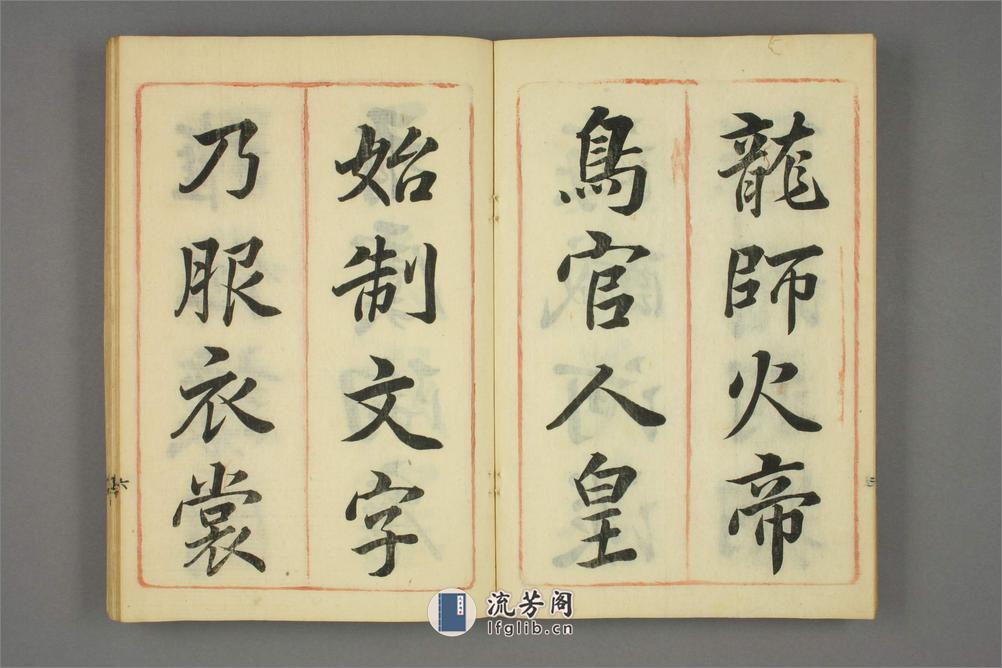 龍師火帝
鳥官人皇
始制文字
乃服衣裳
流芳阁
lfglib.cn